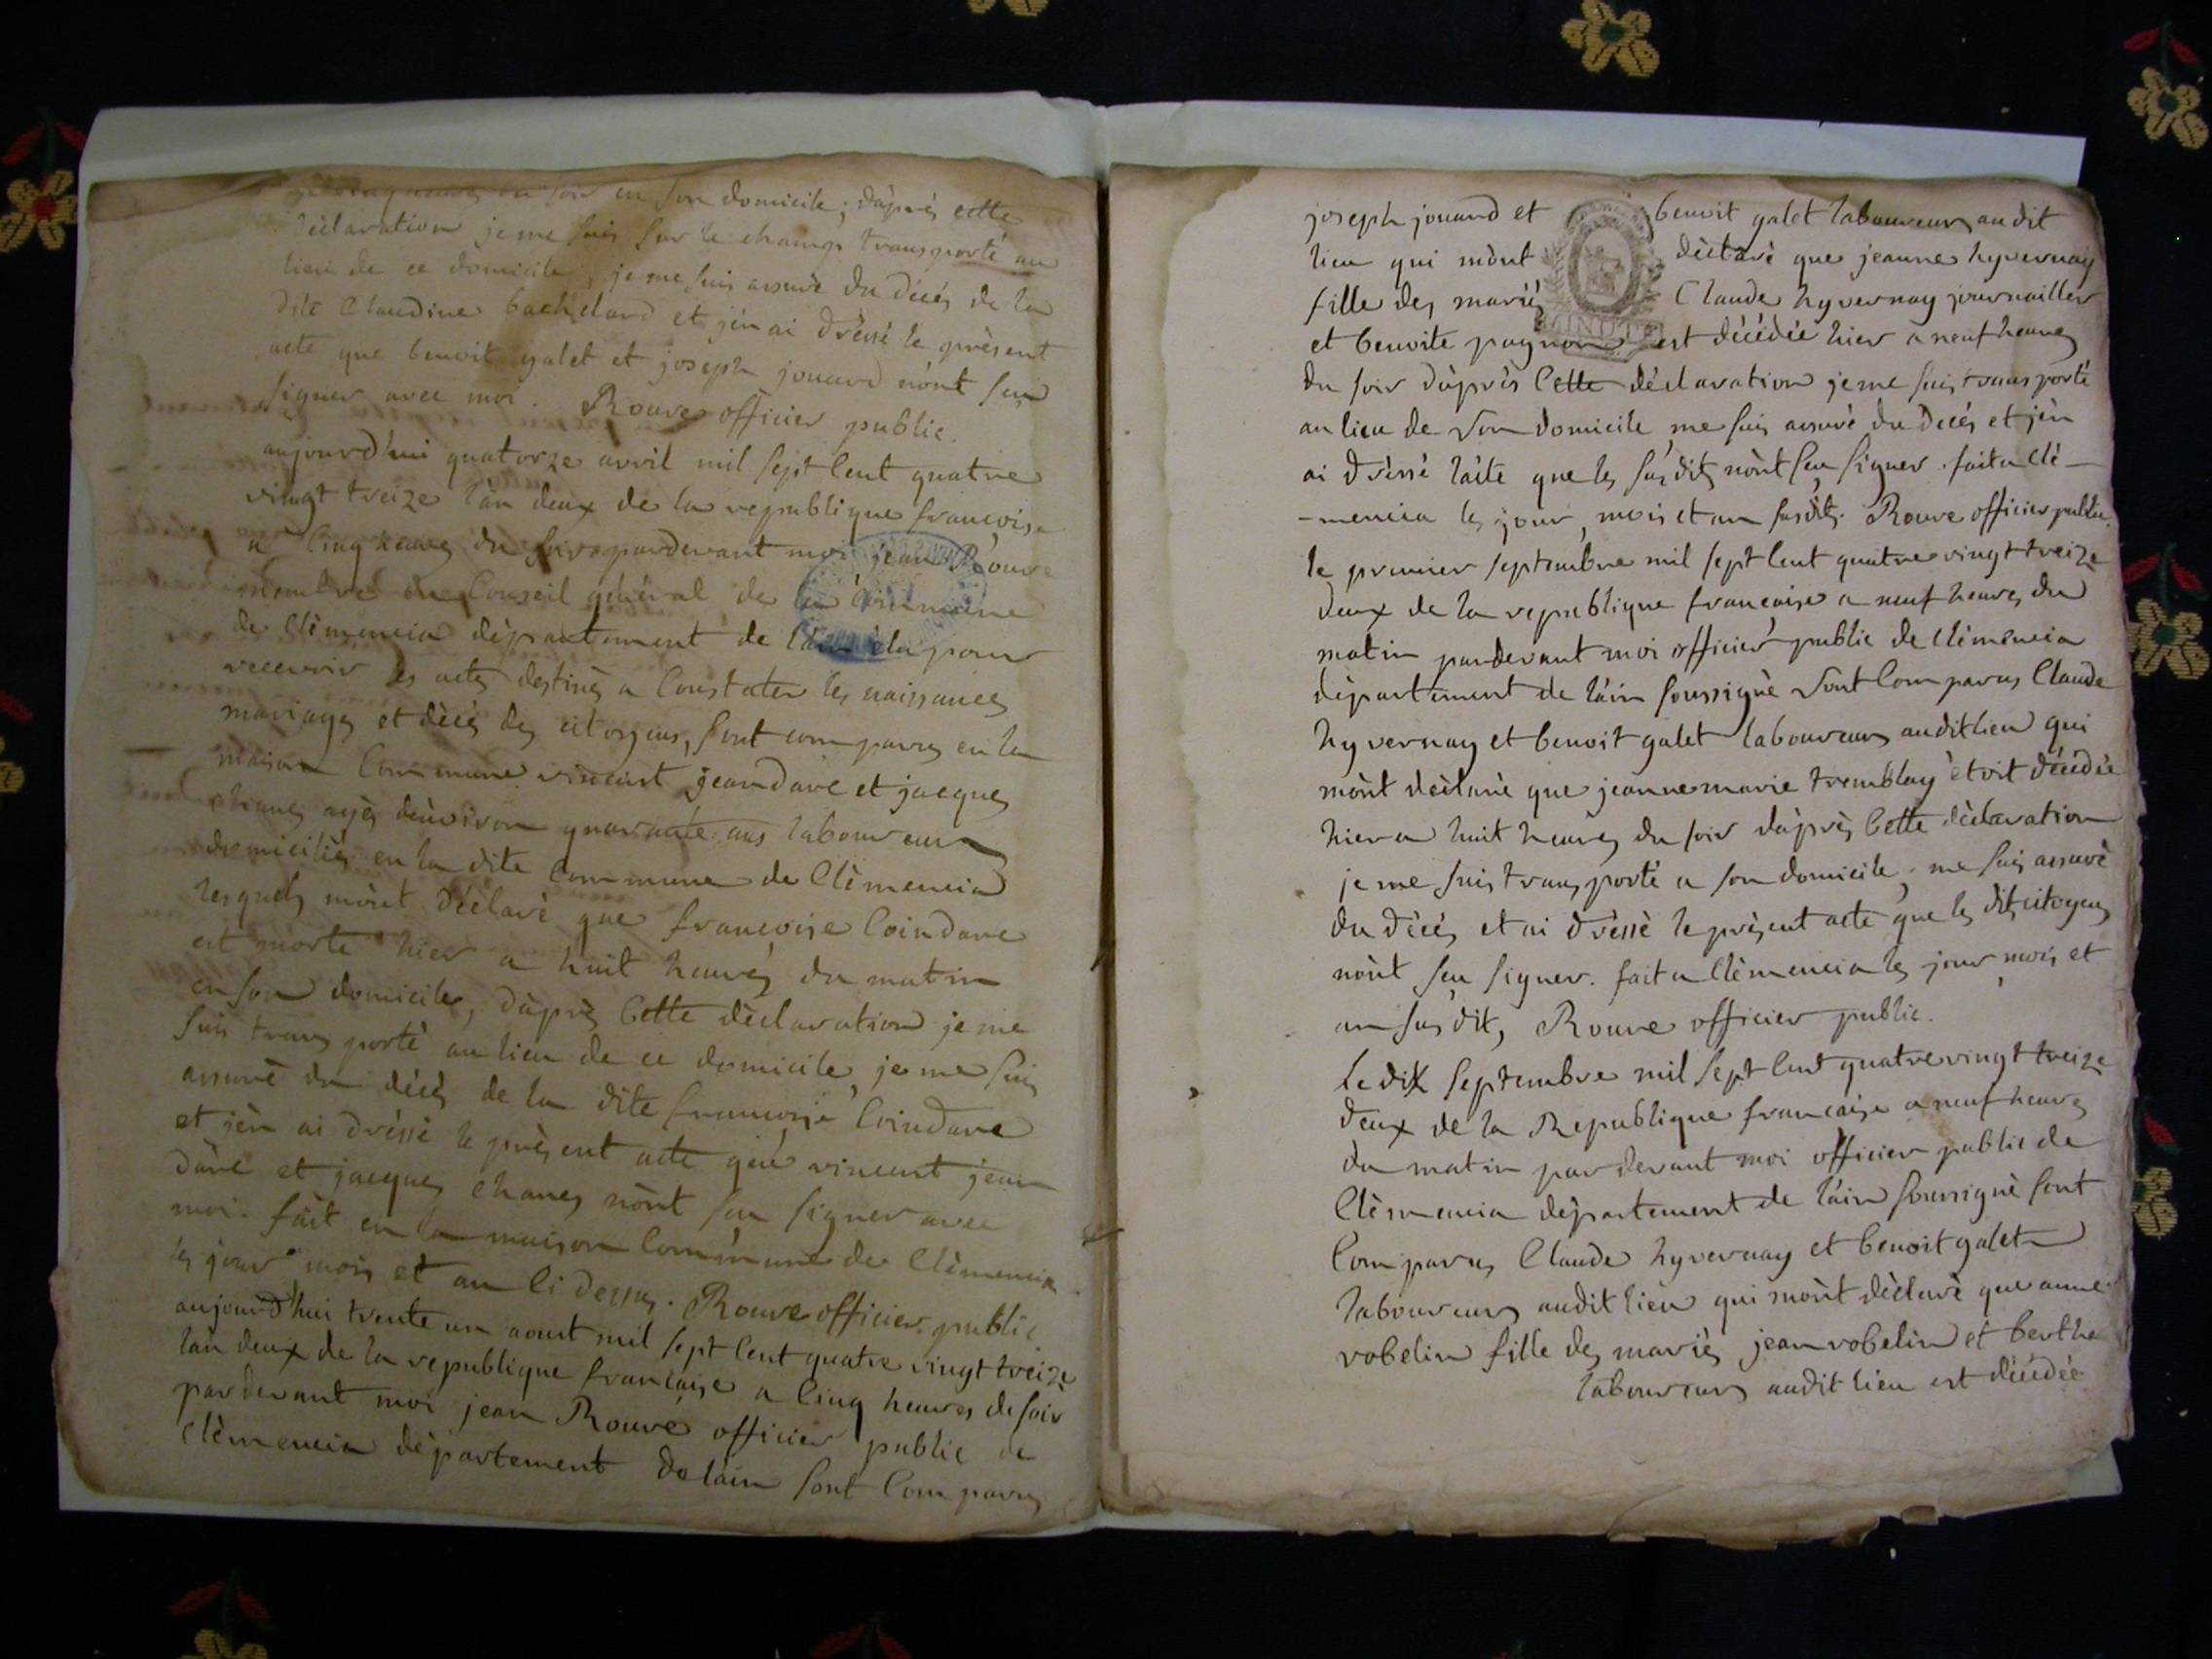 heures du soir en son domicile; d'après cette
déclaration je me suis sur le champ transporté au
lieu de ce domicile, je me suis assuré du décés de la
dite Claudine bachelard et j'en ai dréssé le présent
acte que benoit galet et joseph jouard n'ont seu
signer avec moi. Rouve officier public.
aujourd'hui quatorze avril mil sept Cent quatre
vingt treize l'an deux de la republique françoise
a Cinq heures du soir pardevant moi jean Rouve
membre du Conseil général de la Commune
de Clémencia département de l'ain élu pour
recevoir les actes destinés a Constater les naissances
mariages et décés des citoyens, sont comparus en la
maison Commune vincent jeandare et jacques
chanes agés d'environ quarante ans laboureurs
domiciliés en la dite Commune de Clémencia
lesquels m'ont déclaré que françoise Coindare
est morte hier a huit heures du matin
en son domicile, d'après Cette déclaration je me
suis transporté au lieu de ce domicile, je me suis
assuré du décés de la dite françoise Coindare
et j'en ai dréssé le présent acte que vincent jean
dare et jacques chanes n'ont seu signer avec
moi. fait en la maison Commune de Clémencia
les jour mois et an Ci dessus. Rouve officier public
aujourd'hui trente un aoust mil sept Cent quatre vingt treize
l'an deux de la republique francaise a Cinq heures de soir
pardevant moi jean Rouve officier public de
Clémencia département de l'ain sont Comparus
joseph jouard et benoit galet laboureurs au dit
lieu qui m'ont déclaré que jeanne hyvernay
fille des mariés Claude hyvernay journailler
MINUTE
et benoite pagnon est décédée hier a neuf heures
du soir d'après Cette déclaration je me suis transporté
au lieu de son domicile me suis assuré du decés et j'en
ai dréssé l'acte que les susdits n'ont seu signer. fait a Clé-
-mencia les jour, mois et an susdits. Rouve officier public.
le premier septembre mil sept Cent quatre vingt treize
deux de la republique française a neuf heures du
matin pardevant moi officier public de Clémencia
département de l'ain soussigné sont Comparus Claude
hyvernay et benoit galet laboureurs audit lieu qui
m'ont déclaré que jeanne marie tremblay étoit décédée
hier a huit heures du soir d'après Cette déclaration
je me suis transporté a son domicile, me suis assuré
du décés et ai dréssé le présent acte que les dits citoyens
n'ont seu signer. fait a Clémencia les jour, mois et
an susdit, Rouve officier public.
le dix septembre mil sept Cent quatre vingt treize
deux de la Republique française a neuf heures
du matin pardevant moi officier public de
Clémencia département de l'ain soussigné sont
Comparus Claude hyvernay et benoit galet
laboureurs audit lieu qui m'ont déclaré que anne
robelin fille des mariés jean robelin et berthe
laboureurs audit lieu est décédée